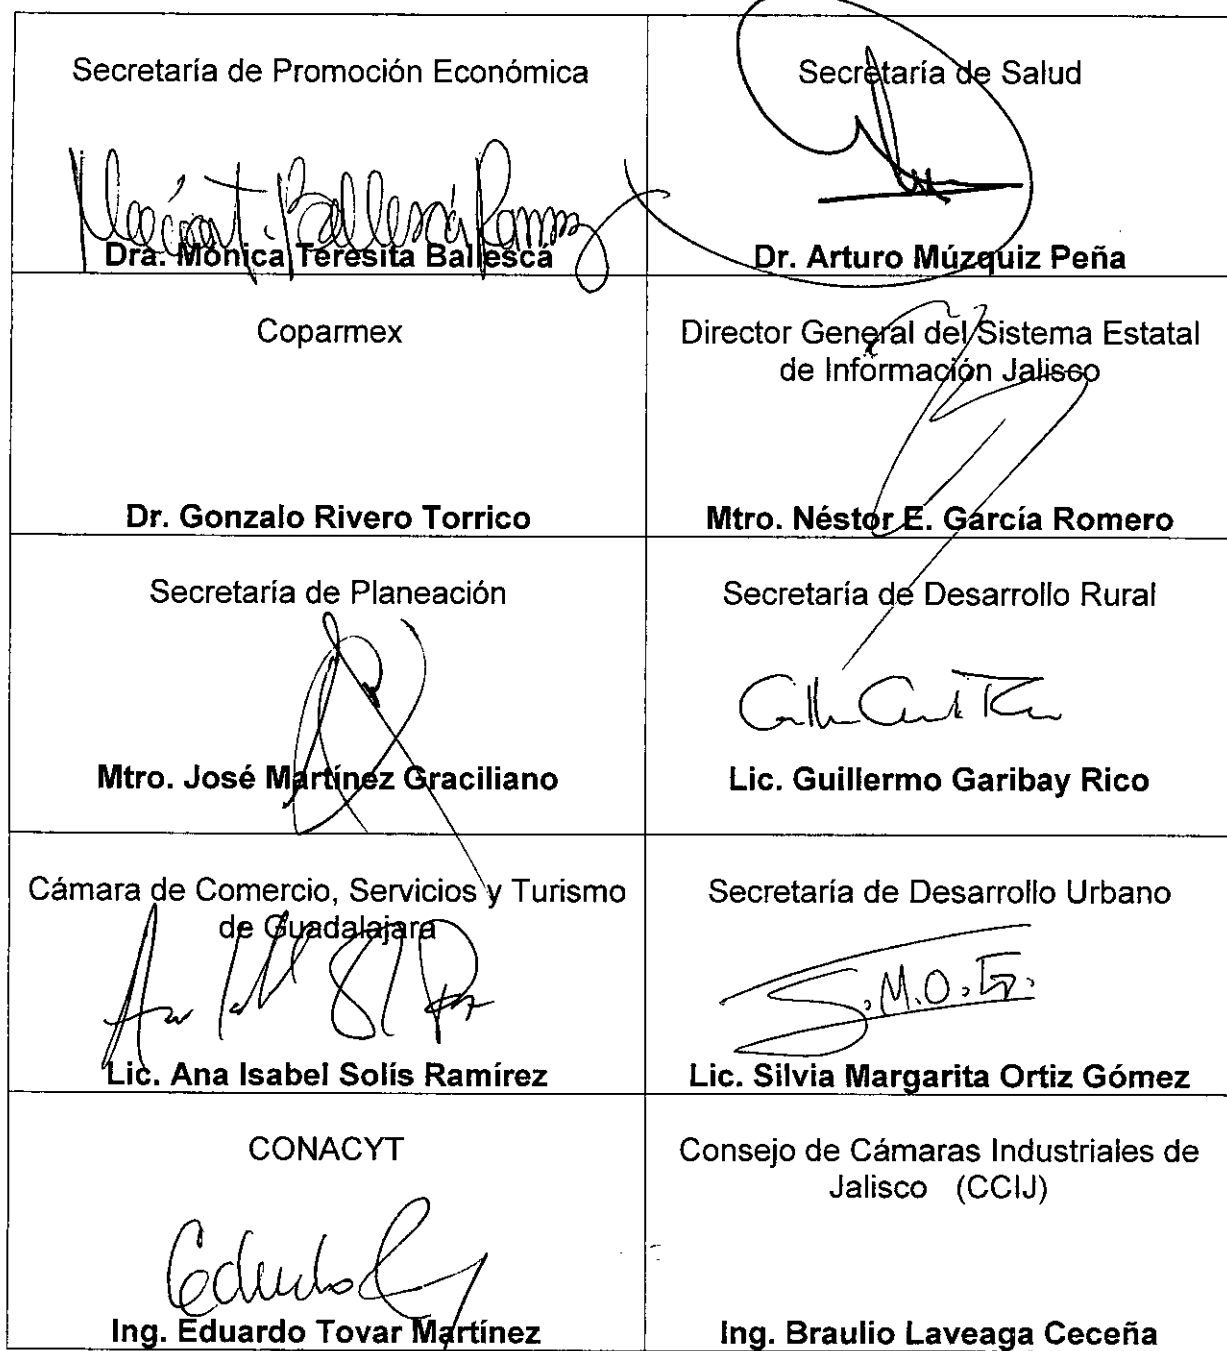 Secretaría de Promoción Económica
Dra. Mónica Teresita Ballescá
Secretaría de Salud
Dr. Arturo Múzquiz Peña
Coparmex
Dr. Gonzalo Rivero Torrico
Director General del Sistema Estatal
de Información Jalisco
Mtro. Néstor E. García Romero
Secretaría de Planeación
Mtro. José Martínez Graciliano
Secretaría de Desarrollo Rural
Lic. Guillermo Garibay Rico
Cámara de Comercio, Servicios y Turismo
de Guadalajara
Lic. Ana Isabel Solís Ramírez
Secretaría de Desarrollo Urbano
S.M.O.G.
Lic. Silvia Margarita Ortiz Gómez
CONACYT
Eduardo
Ing. Eduardo Tovar Martínez
Consejo de Cámaras Industriales de
Jalisco (CCIJ)
Ing. Braulio Laveaga Ceceña